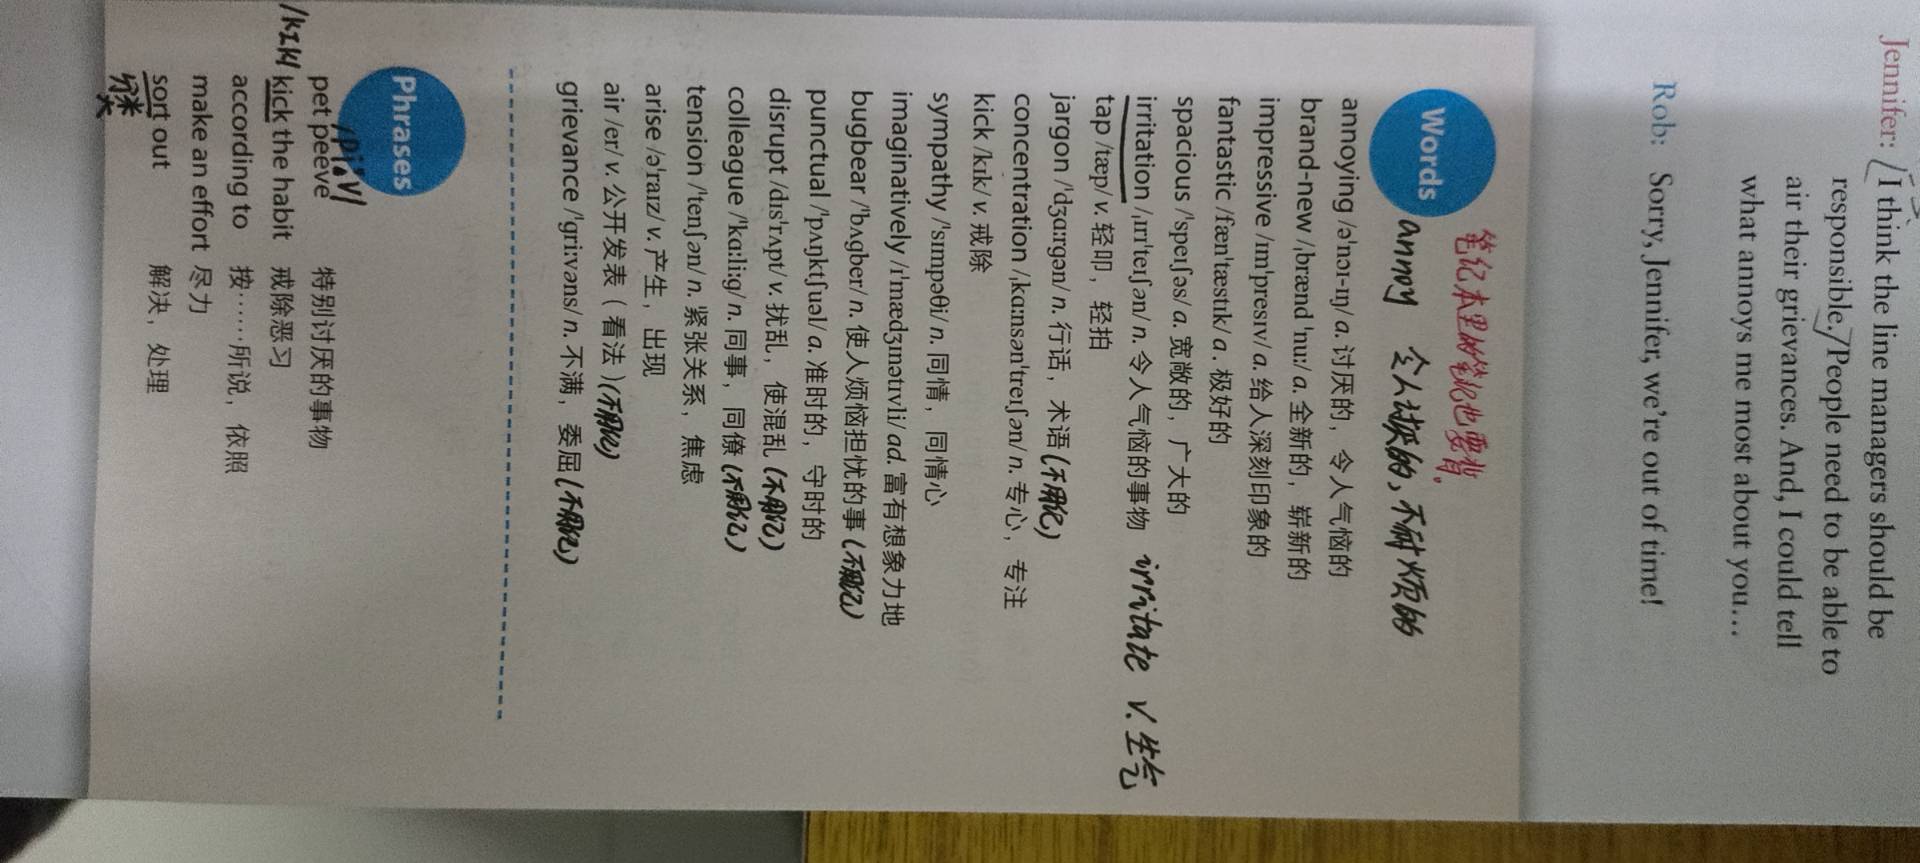 Jennifer: I think the line managers should be
responsible. People need to be able to
air their grievances. And, I could tell
what annoys me most about you…
Rob: Sorry, Jennifer, we're out of time!
笔纪本里的笔记也要背。
Words annoy 令人讨厌的，不耐烦的
annoying /ə'nɔɪ-ɪŋ/ a. 讨厌的，令人气恼的
brand-new /brænd 'nuː/ a. 全新的，崭新的
impressive /ɪm'presɪv/ a. 给人深刻印象的
fantastic /fæn'tæstɪk/ a. 极好的
spacious /'speɪʃəs/ a. 宽敞的，广大的
irritation /ˌɪrɪ'teɪʃən/ n. 令人气恼的事物 irritate v. 生气
tap /tæp/ v. 轻叩，轻拍
jargon /'dʒɑːrgən/ n. 行话，术语 (不用记)
concentration /ˌkɑːnsən'treɪʃən/ n. 专心，专注
kick /kɪk/ v. 戒除
sympathy /'sɪmpəθi/ n. 同情，同情心
imaginatively /ɪ'mædʒɪnətɪvli/ ad. 富有想象力地
bugbear /'bʌgber/ n. 使人烦恼担忧的事 (不用记)
punctual /'pʌŋktʃuəl/ a. 准时的，守时的
disrupt /dɪs'rʌpt/ v. 扰乱，使混乱 (不用记)
colleague /'kɑːliːg/ n. 同事，同僚 (不用记)
tension /'tenʃən/ n. 紧张关系，焦虑
arise /ə'raɪz/ v. 产生，出现
air /er/ v. 公开发表（看法）(不用记)
grievance /'griːvəns/ n. 不满，委屈 (不用记)
Phrases
/piːv/
pet peeve 特别讨厌的事物
/kɪk/ kick the habit 戒除恶习
according to 按……所说，依照
make an effort 尽力
sort out 解决，处理
分类